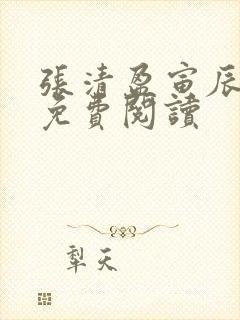 張清盈寅辰
免費閱讀
犁天